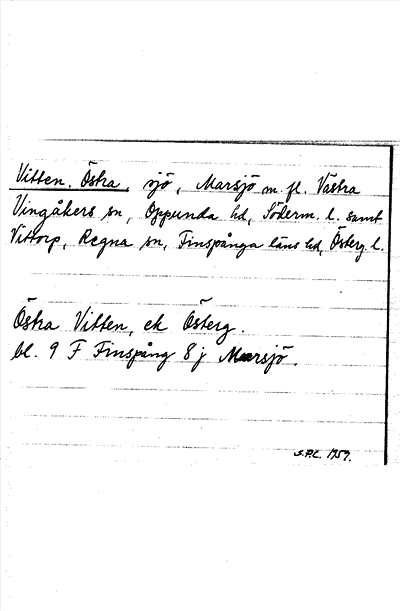 Vitten, Östra, sjö, Marsjö m. fl. Västra
Vingåkers sn, Oppunda hd, Söderm. l. samt
Vittorp, Regna sn, Finspånga läns hd, Österg. l.
Östra Vitten, ek Österg.
bl. 9 F Finspång 8 j Marsjö.
1959.